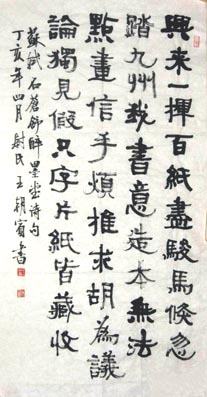 興來一揮百紙盡駿馬倏忽
踏九州我書意造本無法
點畫信手煩推求胡為議
論獨見假只字片紙皆藏收
蘇軾石蒼舒醉墨堂诗句
丁亥年四月尉氏王胡賓書